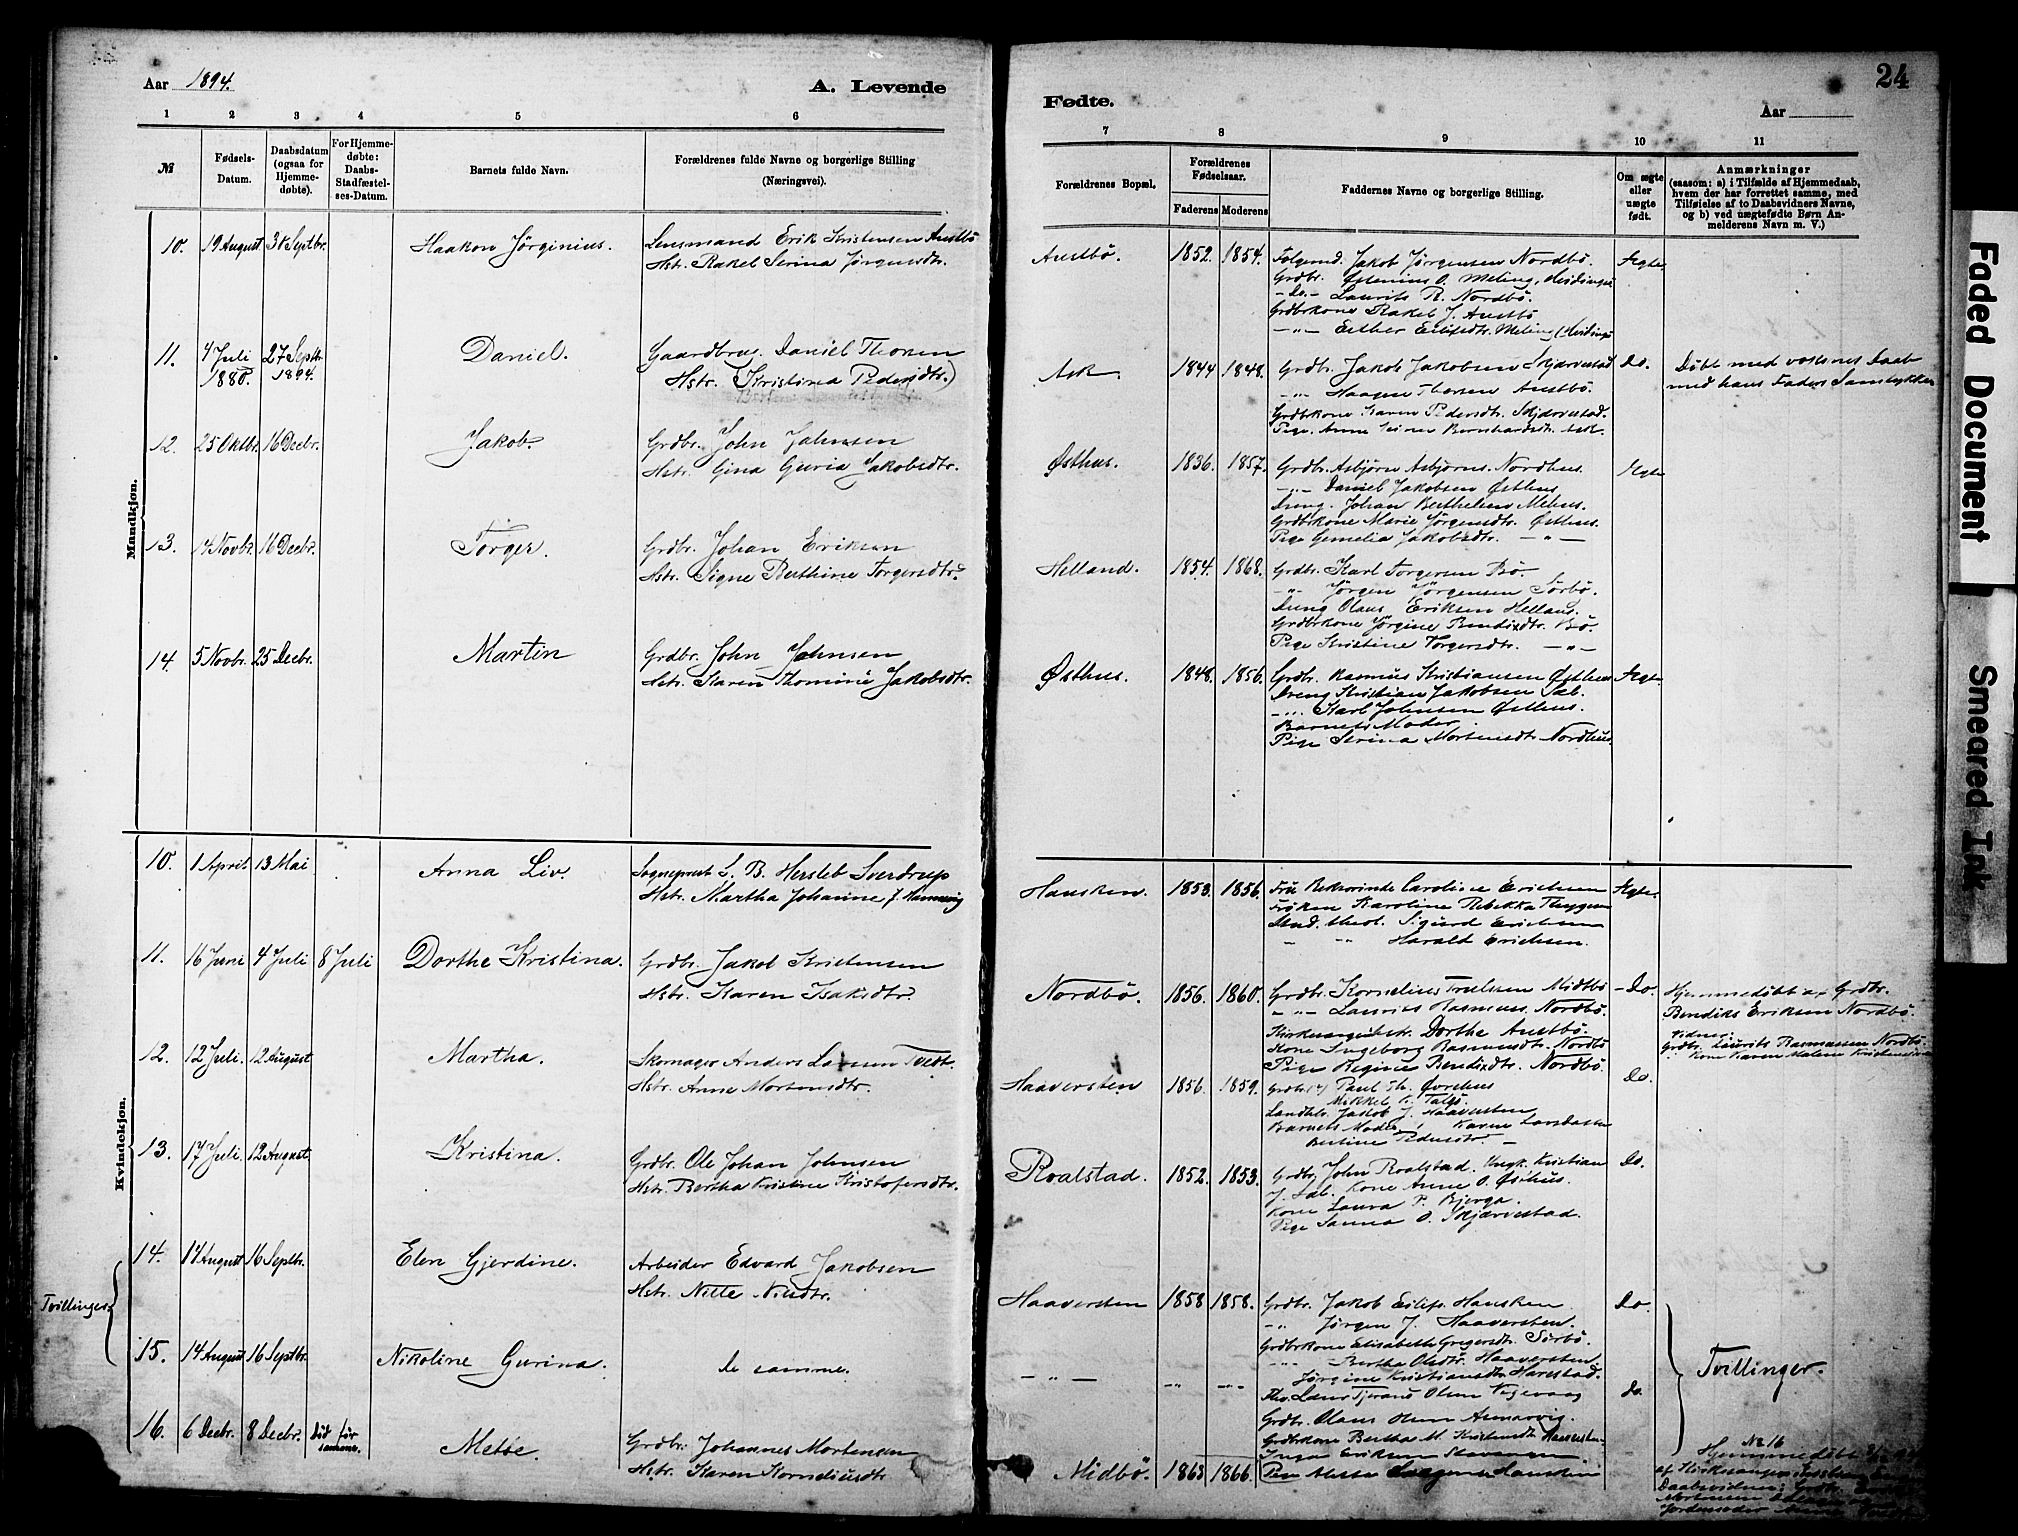 Aar 1894.
A. Levende
1 2 3 4 5 6
№
Fødsels-
Datum.
Daabsdatum
(ogsaa for
Hjemme-
døbte).
For Hjemme-
døbte:
Daabs-
Stadfæstel-
ses-Datum.
Barnets fulde Navn.
Forældrenes fulde Navne og borgerlige Stilling
(Næringsvei).
Mandkjøn.
10. 19 August 30 Septbr. Haakon Jørginius. Lensmand Erik Kristensen Austbø
Hstr. Rakel Serina Jørgensdtr.
11. 4 Juli 27 Septbr. Daniel. Gaardbrug. Daniel Thorsen
1880. 1894. Hstr. (Kristina Pedersdtr.)
12. 25 Oktbr. 16 Decbr. Jakob. Grdbr. John Johnsen
Hstr. Gina Guria Jakobsdtr.
13. 14 Novbr. 16 Decbr. Torger. Grdbr. Johan Eriksen
Hstr. Signe Berthine Torgersdtr.
14. 5 Novbr. 25 Decbr. Martin Grdbr. John Johnsen
Hstr. Karen Thomine Jakobsdtr.
Kvindekjøn.
10. 1 April. 13 Mai Anna Liv. Sogneprest L. B. Hersleb Sverdrup
Hstr. Martha Johanne f.
11. 16 Juni 4 Juli 8 Juli Dorthe Kristina. Grdbr. Jakob Kristensen
Hstr. Karen Isaksdtr.
12. 12 Juli. 12 August Martha. Skomager Anders Larsen Tvedt.
Hstr. Anne Mortensdtr.
13. 17 Juli. 12 August. Kristina. Grdbr. Ole Johan Johnsen
Hstr. Bertha Kristine Kristofersdtr.
Tvillinger
14. 14 August 16 Septbr. Elen Gjerdine. Arbeider Edvard Jakobsen
Hstr. Nille Nilsdtr.
15. 14 August 16 Septbr. Nikoline Gurina. de samme.
16. 6 Decbr. 8 Decbr. Død før Metse. Grdbr. Johannes Mortensen
samme. Hstr. Karen Korneliusdtr
24
Fødte.
Aar
7 8 9 10 11
Forældrenes Bopæl.
Forældrenes
Fødselsaar.
Faderens Moderens
Faddernes Navne og borgerlige Stilling.
Om ægte
eller
uægte
født.
Anmærkninger
(saasom: a) i Tilfælde af Hjemmedaab,
hvem der har forrettet samme, med
Tilføielse af to Daabsvidners Navne,
og b) ved uægtefødte Børn An-
melderens Navn m. V.)
Austbø. 1852. 1854. Jakob Jørgensen Nordbø. Ægte.
Grdbr. Østenius O. Meling,
-Do- Laurits R. Nordbø.
Grdbrkone Rakel J. Austbø
-"- Esther Eilifsdtr. Meling
Ask. 1844 1848. Grdbr. Jakob Jakobsen Skjærvestad Do. Døbt med voksnes Daab
-"- Haagen Thorsen Austbø. med hans Faders Samtykke
Grdbrkone Karen Pedersdtr. Skjærvestad.
Pige. Anne Serine Bernhardsdtr. Ask.
Østhus. 1836. 1857. Grdbr. Asbjørn Asbjørns. Nordhus. Ægte
-"- Daniel Jakobsen Østhus
Dreng. Johan Berthelsen Mehus.
Grdbrkone Marie Jørgensdtr. Østhus.
Pige Gemelia Jakobsdtr. -"-
Helland. 1854. 1868. Grdbr. Karl Torgersen Bø.
-"- Jørgen Jørgensen Sørbø.
Dreng Olaus Eriksen Helland.
Grdbrkone Jørgine Bendixdtr. Bø.
Pige Kristine Torgersdtr. -"-
Østhus. 1848. 1856. Grdbr. Rasmus Kristiansen Østhus Ægte.
Dreng Kristian Jakobsen Sæl.
-"- Karl Johnsen Østhus.
Barnets Moder.
Pige Serina Mortensdtr. Nordhus.
Hausken. 1853. 1856. Fru Caroline Erichsen Ægte.
Frøken Karoline Rebekka
Stud. theol. Sigurd Erichsen
" " Harald Erichsen.
Nordbø. 1856. 1860. Grdbr. Kornelius Truelsen Midtbø -Do. Hjemmedøbt af Grdbr.
-"- Laurits Rasmuss. Nordbø. Bendiks Eriksen Nordbø.
Kirkesangerhstr. Dorthe Austbø. Vidner:
Kone Ingeborg Rasmusdtr. Nordbø Grdbr. Laurits Rasmussen Nordbø
Pige Regine Bendixdtr. Nordbø. Kone Karen Malene
Haaversten 1856. 1859. Paul Th. Øvrehus Do.
Mikkel K. Talgø.
Landhdl. Jakob J. Haaversten
Barnets Moder, Karen
Bertine Pedersdtr -
Roalstad. 1852. 1853. Grdbr. John Roalstad. Ungk. Kristian Do.
J. Sæl. Kone Anne O. Østhus.
Kone Laura P. Bjerga.
Pige Sanna O. Skjærvestad.
Haaversten 1858 1858. Grdbr. Jakob Eilifs. Hausken. Do.
-"- Jørgen J. Haaversten.
Grdbrkone Elisabeth Gregersdtr. Sørbø.
-"- Bertha Olsdtr. Haaversten
-"- -"- -"- Jørgine Kristiansdtr. Harestad. Tvillinger.
Tjerand Olsen do.
Grdbr. Olaus
Grdbrkone Bertha M.
Inga Eriksen Stavanger
Midbø. 1863 1866. Pige Hausken
№ 16
Hjemmedøbt
af Kirkesanger
Daabsvidner: Grdbr.
Mortensen
Jordemoder
Faded Document
Smeared Ink